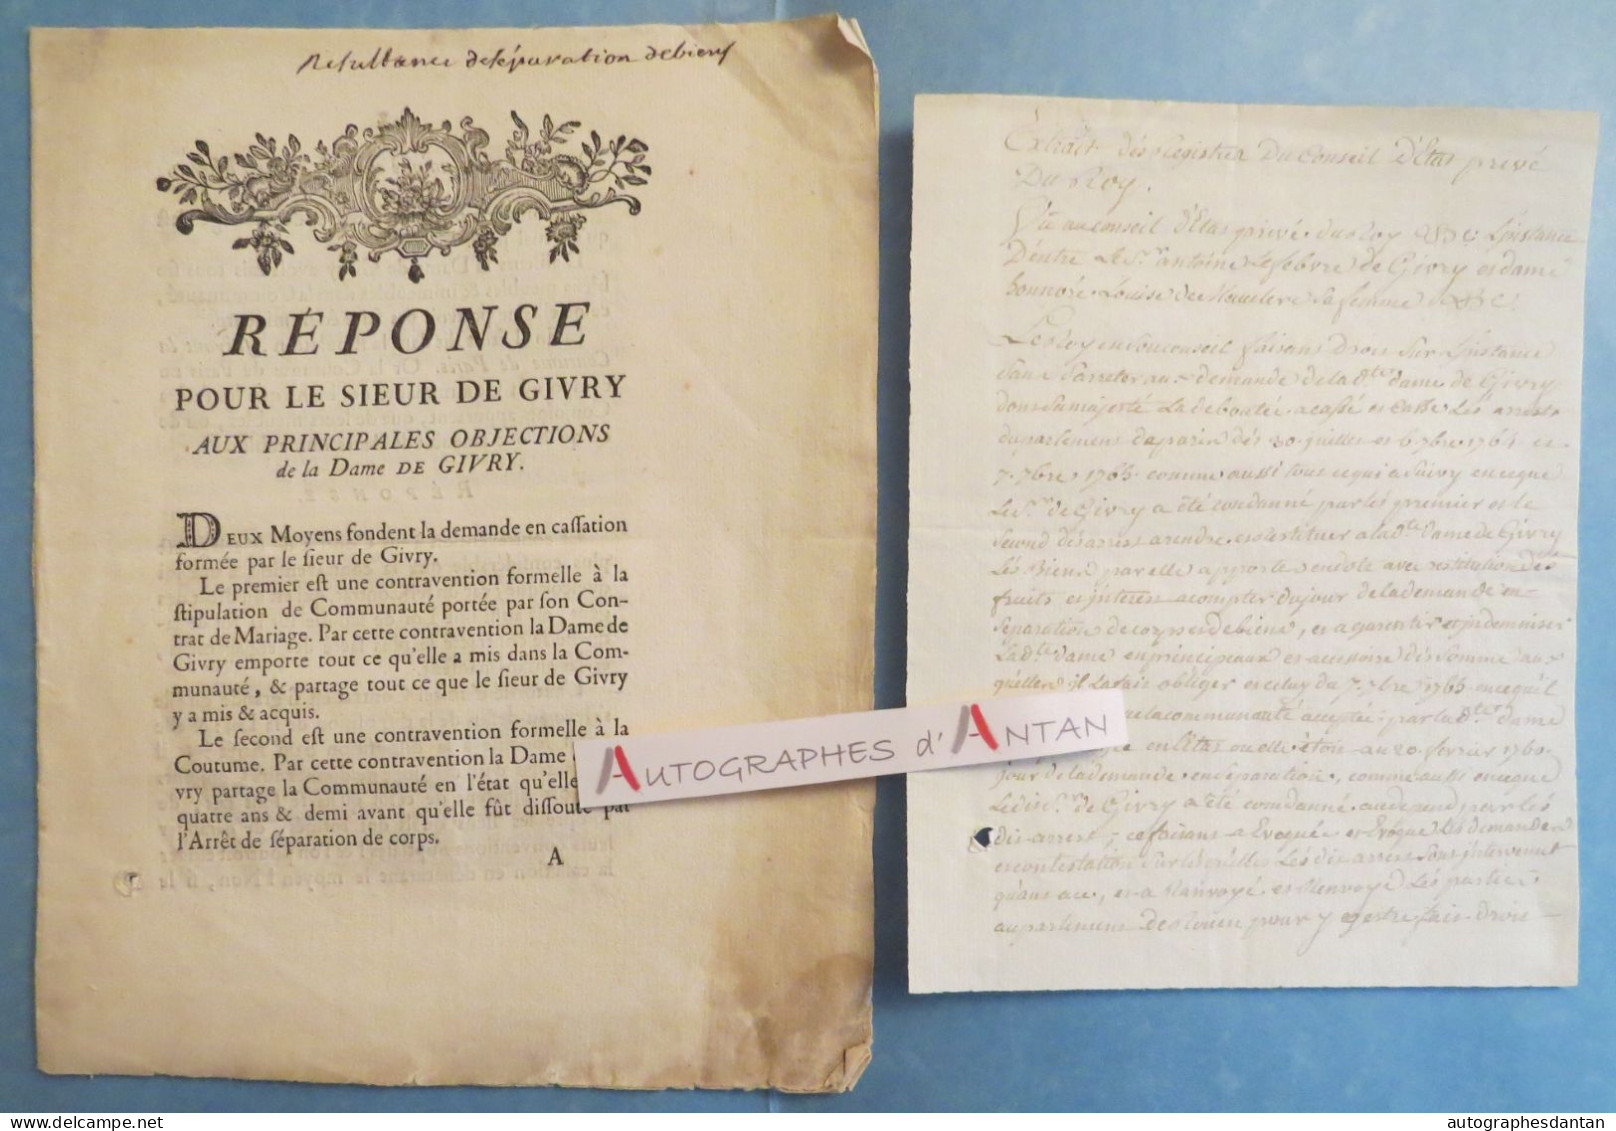 Resultance de séparation de biens
RÉPONSE
POUR LE SIEUR DE GIVRY
AUX PRINCIPALES OBJECTIONS
de la Dame DE GIVRY.
DEUX Moyens fondent la demande en cassation
formée par le sieur de Givry.
Le premier est une contravention formelle à la
stipulation de Communauté portée par son Con-
trat de Mariage. Par cette contravention la Dame de
Givry emporte tout ce qu'elle a mis dans la Com-
munauté, & partage tout ce que le sieur de Givry
y a mis & acquis.
Le second est une contravention formelle à la
Coutume. Par cette contravention la Dame
vry partage la Communauté en l'état qu'elle
quatre ans & demi avant qu'elle fût dissoute par
l'Arrêt de séparation de corps.
A
AUTOGRAPHES d'ANTAN
Extrait des registres du Conseil d'Etat privé
Du Roy.
Vu au conseil d'Etat privé du Roy &c; L'instance
D'entre Le Sr. antoine Lefebvre de Givry et dame
honnoré Louise de sa femme &c.
Le Roy en son conseil faisant Droit Sur L'instance
Sans s'arreter aux demande de la de. dame de Givry
dont Sa majesté La deboutée, a cassé et Casse Les arrests
du parlement de paris des 20. juillet et 6. 7bre. 1765 et
7. 7bre, 1765. comme aussi tout ce qui a Suivy en ce que
Le Sr. de Givry a été condanné par les premier et le
Second des arrests a rendre et restituer a la de. Dame de Givry
Les Biens par elle apporté en dote avec restitution des
fruits et interests a compter du jour de la demande en
Separation de corps et de biens, et a garentir et indemniser
La de. dame en principeaux et accessoire des Somme aux
quelles il L'a fait obliger et celuy du 7. 7bre 1765 en ce qu'il
la communauté acceptée par la de. dame
en l'état ou elle étoit au 20. fevrier 1760.
jour de la demande en séparation, comme aussi en ce que
Ledit Sr. de Givry a été condanné au depend par les
dis arrest; ce faisant a Evoqué et Evoque Les demandes
et contestation Sur lesquelles Les dis arrets Sont intervenut
quant a ce, et a Renvoyé et Renvoye Les parties
au parlement de Rouen pour y etre fait Droit
autographesdantan